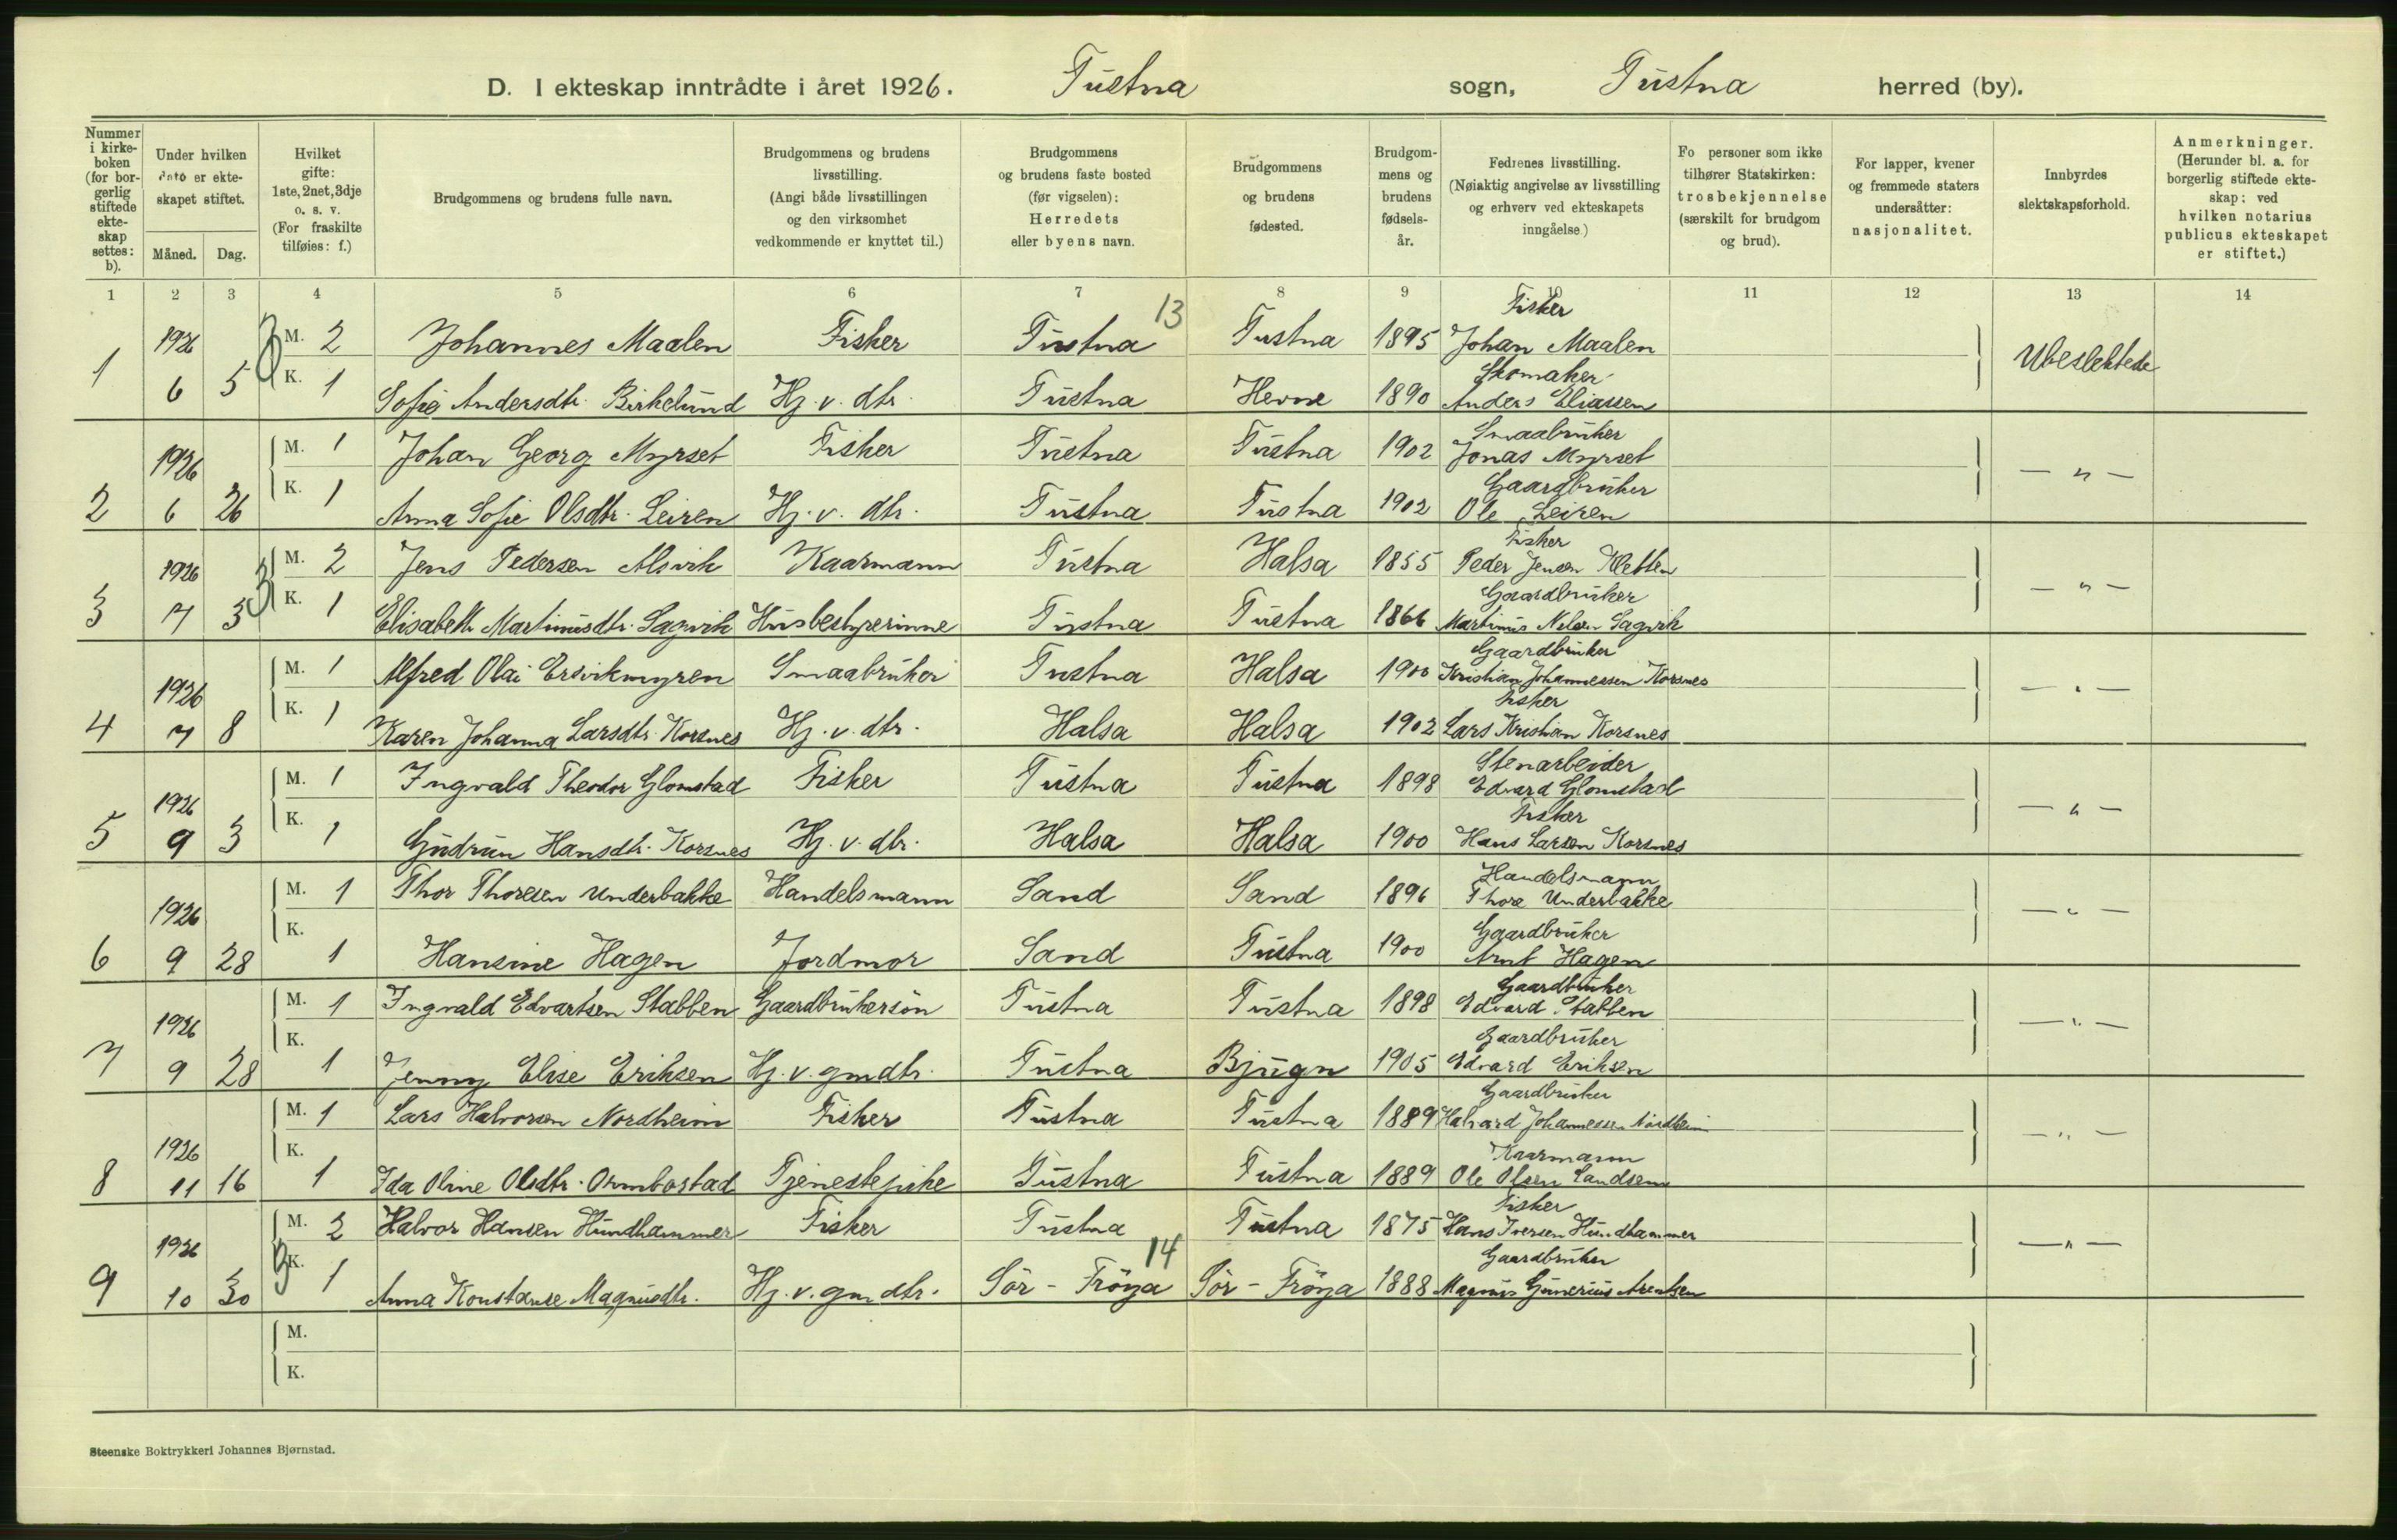 D. I ekteskap inntrådte i året 1926. Tustna sogn, Tustna herred (by).
Nummer i kirkeboken (for borgerlig stiftede ekteskap settes: b).
Under hvilken dato er ekteskapet stiftet.
Måned. Dag.
Hvilket gifte: 1ste, 2net, 3dje o. s. v. (For fraskilte tilføies: f.)
Brudgommens og brudens fulle navn.
Brudgommens og brudens livsstilling. (Angi både livsstillingen og den virksomhet vedkommende er knyttet til.)
Brudgommens og brudens faste bosted (før vigselen): Herredets eller byens navn.
Brudgommens og brudens fødested.
Brudgommens og brudens fødselsår.
Fedrenes livsstilling. (Nøiaktig angivelse av livsstilling og erhverv ved ekteskapets inngåelse)
Fo personer som ikke tilhører Statskirken: trosbekjennelse (særskilt for brudgom og brud).
For lapper, kvener og fremmede staters undersåtter: nasjonalitet.
Innbyrdes slektskapsforhold.
Anmerkninger. (Herunder bl. a. for borgerlig stiftede ekteskap: ved hvilken notarius publicus ekteskapet er stiftet.)
1 2 3 4 5 6 7 8 9 10 11 12 13 14
13
Fisker
1926 M. 2 Johannes Maalen Fisker Tustna Tustna 1895 Johan Maalen
Skomaker
1 6 5 K. 1 Sofie Andersdtr. Birkelund Hj. v. dtr. Tustna Hevne 1890 Anders Eliassen Ubeslektede
Smaabruker
1926 M. 1 Johan Georg Myrset Fisker Tustna Tustna 1902 Jonas Myrset
Gaardbruker
2 6 26 K. 1 Anna Sofie Olsdtr. Leiren Hj. v. dtr. Tustna Tustna 1902 Ole Leiren — " —
Fisker
1926 M. 2 Jens Pedersen Alsvik Kaarmann Tustna Halsa 1855 Peder Jensen Kletten
Gaardbruker
3 7 3 K. 1 Elisabeth Martinusdtr. Sagvik Husbestyrerinne Tustna Tustna 1866 Martinus Nelsen Sagvik — " —
Gaardbruker
1926 M. 1 Alfred Olai Ersvikmyren Smaabruker Tustna Halsa 1900 Kristian Johannessen Korsnes
Fisker
4 7 8 K. 1 Karen Johanna Larsdtr. Korsnes Hj. v. dtr. Halsa Halsa 1902 Lars Kristian Korsnes — " —
Stenarbeider
1926 M. 1 Ingvald Theodor Glomstad Fisker Tustna Tustna 1898 Edvard Glomstad
Fisker
5 9 3 K. 1 Gudrun Hansdtr. Korsnes Hj. v. dtr. Halsa Halsa 1900 Hans Larsen Korsnes — " —
Handelsmann
1926 M. 1 Thor Thoresen Underbakke Handelsmann Sand Sand 1896 Thore Underbakke
Gaardbruker
6 9 28 K. 1 Hansine Hagen Jordmor Sand Tustna 1900 Arnt Hagen — " —
Gaardbruker
1926 M. 1 Ingvald Edvartsen Stabben Gaardbrukersøn Tustna Tustna 1898 Edvard Stabben
Gaardbruker
7 9 28 K. 1 Jenny Elise Eriksen Hj. v. gmdtr. Tustna Bjugn 1905 Edvard Eriksen — " —
Gaardbruker
M. 1 Lars Halvorsen Nordheim Fisker Tustna Tustna 1889 Halvard Johannessen Nordheim
1926 Kaarmann
8 11 16 K. 1 Ida Oline Olsdtr. Ormbostad Tjenestepike Tustna Tustna 1889 Ole Olsen Sandsem — " —
Fisker
1926 M. 2 Halvor Hansen Hundhammer Fisker Tustna Tustna 1875 Hans Iversen Hundhammer
14
Gaardbruker
9 10 30 K. 1 Anna Konstanse Magnusdtr. Hj. v. gmdtr. Sör - Fröya Sör - Fröya 1888 Magnus Gunerius Arentsen — " —
M.
K.
Steenske Boktrykkeri Johannes Bjørnstad.